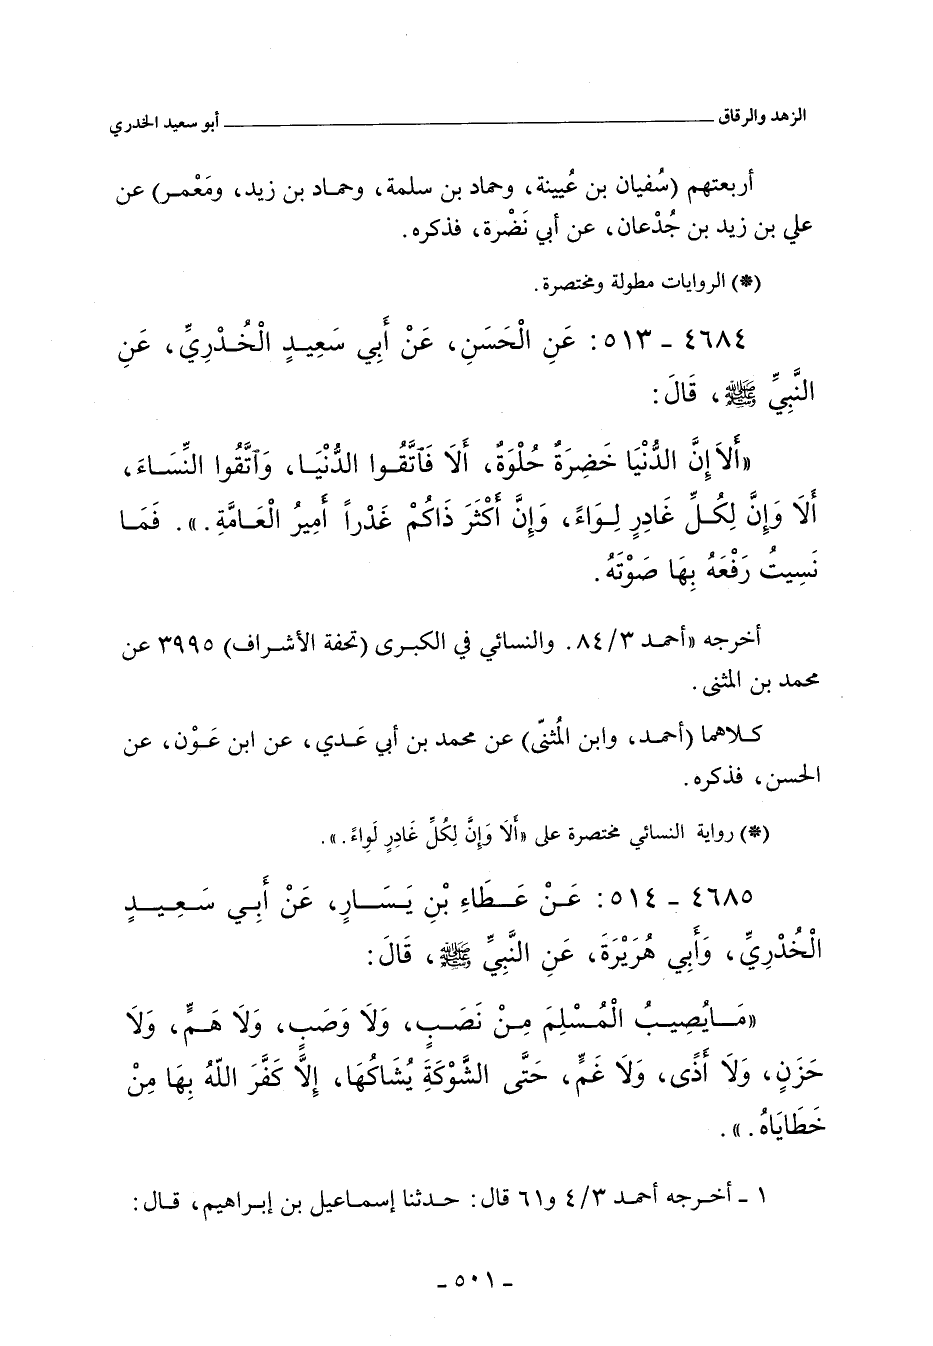 الزهد والرقاق ــــــــــــــــــــ أبو سعيد الخدري
أربعتهم (سُفيان بن عُيينة، وحماد بن سلمة، وحمـاد بن زيد، ومَعْمـر) عن
علي بن زيد بن جُدْعان، عن أبي نَضْرة، فذكره.
(*) الروايات مطولة ومختصرة.
٤٦٨٤ - ٥١٣: عَنِ الْحَسَنِ، عَنْ أَبِي سَعِيدٍ الْخُدْرِيِّ، عَنِ
النَّبِيِّ ﷺ، قَالَ:
«أَلَا إِنَّ الدُّنْيَا خَضِرَةٌ حُلْوَةٌ، أَلَا فَٱتَّقُوا الدُّنْيَا، وَٱتَّقُوا النِّسَاءَ،
أَلَا وَإِنَّ لِكُلِّ غَادِرٍ لِوَاءً، وَإِنَّ أَكْثَرَ ذَاكُمْ غَدْراً أَمِيرُ الْعَامَّةِ.». فَمَا
نَسِيتُ رَفْعَهُ بِهَا صَوْتَهُ.
أخرجه «أحمد ٨٤/٣. والنسائي في الكبرى (تحفة الأشراف) ٣٩٩٥ عن
محمد بن المثنى.
كلاهما (أحمد، وابن المُثنّى) عن محمد بن أبي عَدي، عن ابن عَوْن، عن
الحسن، فذكره.
(*) رواية النسائي مختصرة على «أَلَا وَإِنَّ لِكُلِّ غَادِرٍ لِوَاءً.».
٤٦٨٥ - ٥١٤: عَنْ عَطَاءِ بْنِ يَسَارٍ، عَنْ أَبِي سَعِيدٍ
الْخُدْرِيِّ، وَأَبِي هُرَيْرَةَ، عَنِ النَّبِيِّ ﷺ، قَالَ:
«مَا يُصِيبُ الْمُسْلِمَ مِنْ نَصَبٍ، وَلَا وَصَبٍ، وَلَا هَمٍّ، وَلَا
حَزَنٍ، وَلَا أَذًى، وَلَا غَمٍّ، حَتَّى الشَّوْكَةِ يُشَاكُهَا، إِلَّا كَفَّرَ اللّهُ بِهَا مِنْ
خَطَايَاهُ.».
١ - أخرجه أحمد ٤/٣ و٦١ قال: حدثنا إسماعيل بن إبراهيم، قال:
- ٥٠١ -